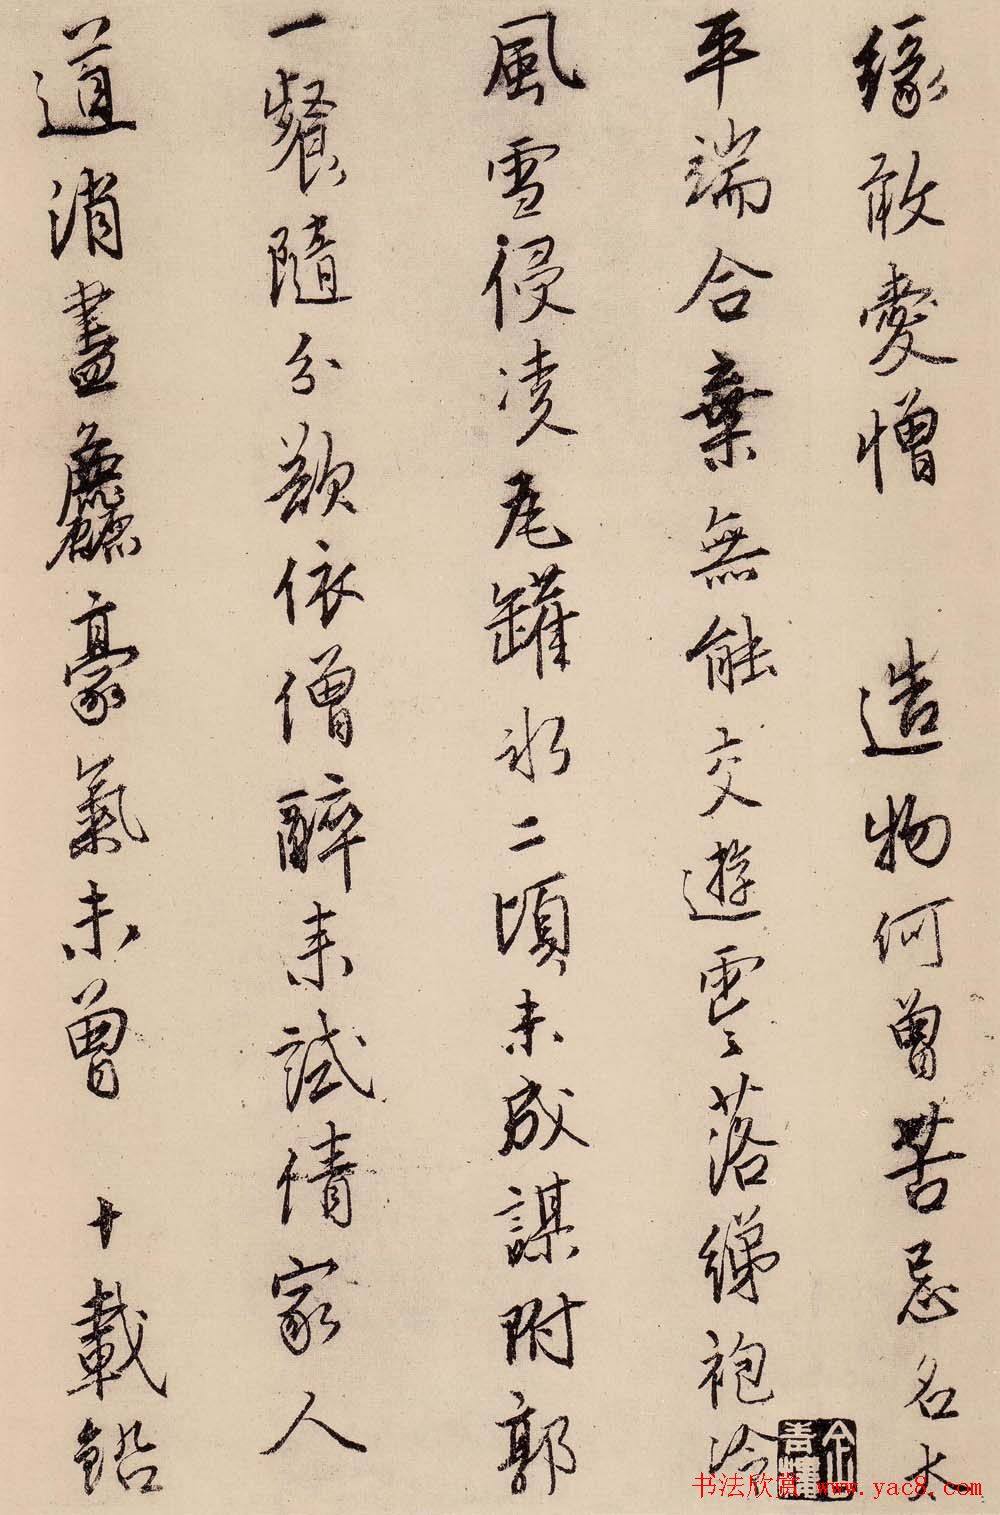 緣敢愛憎 造物何曾苦忌名太
平端合棄無能交遊雲〻落綈袍冷
風雪侵凌瓦罐冰二頃未成謀附郭
一餐隨分欲依僧醉來試倩家人
道消盡麤豪氣未曾 十載鉛
书法欣赏 www.yac8.com